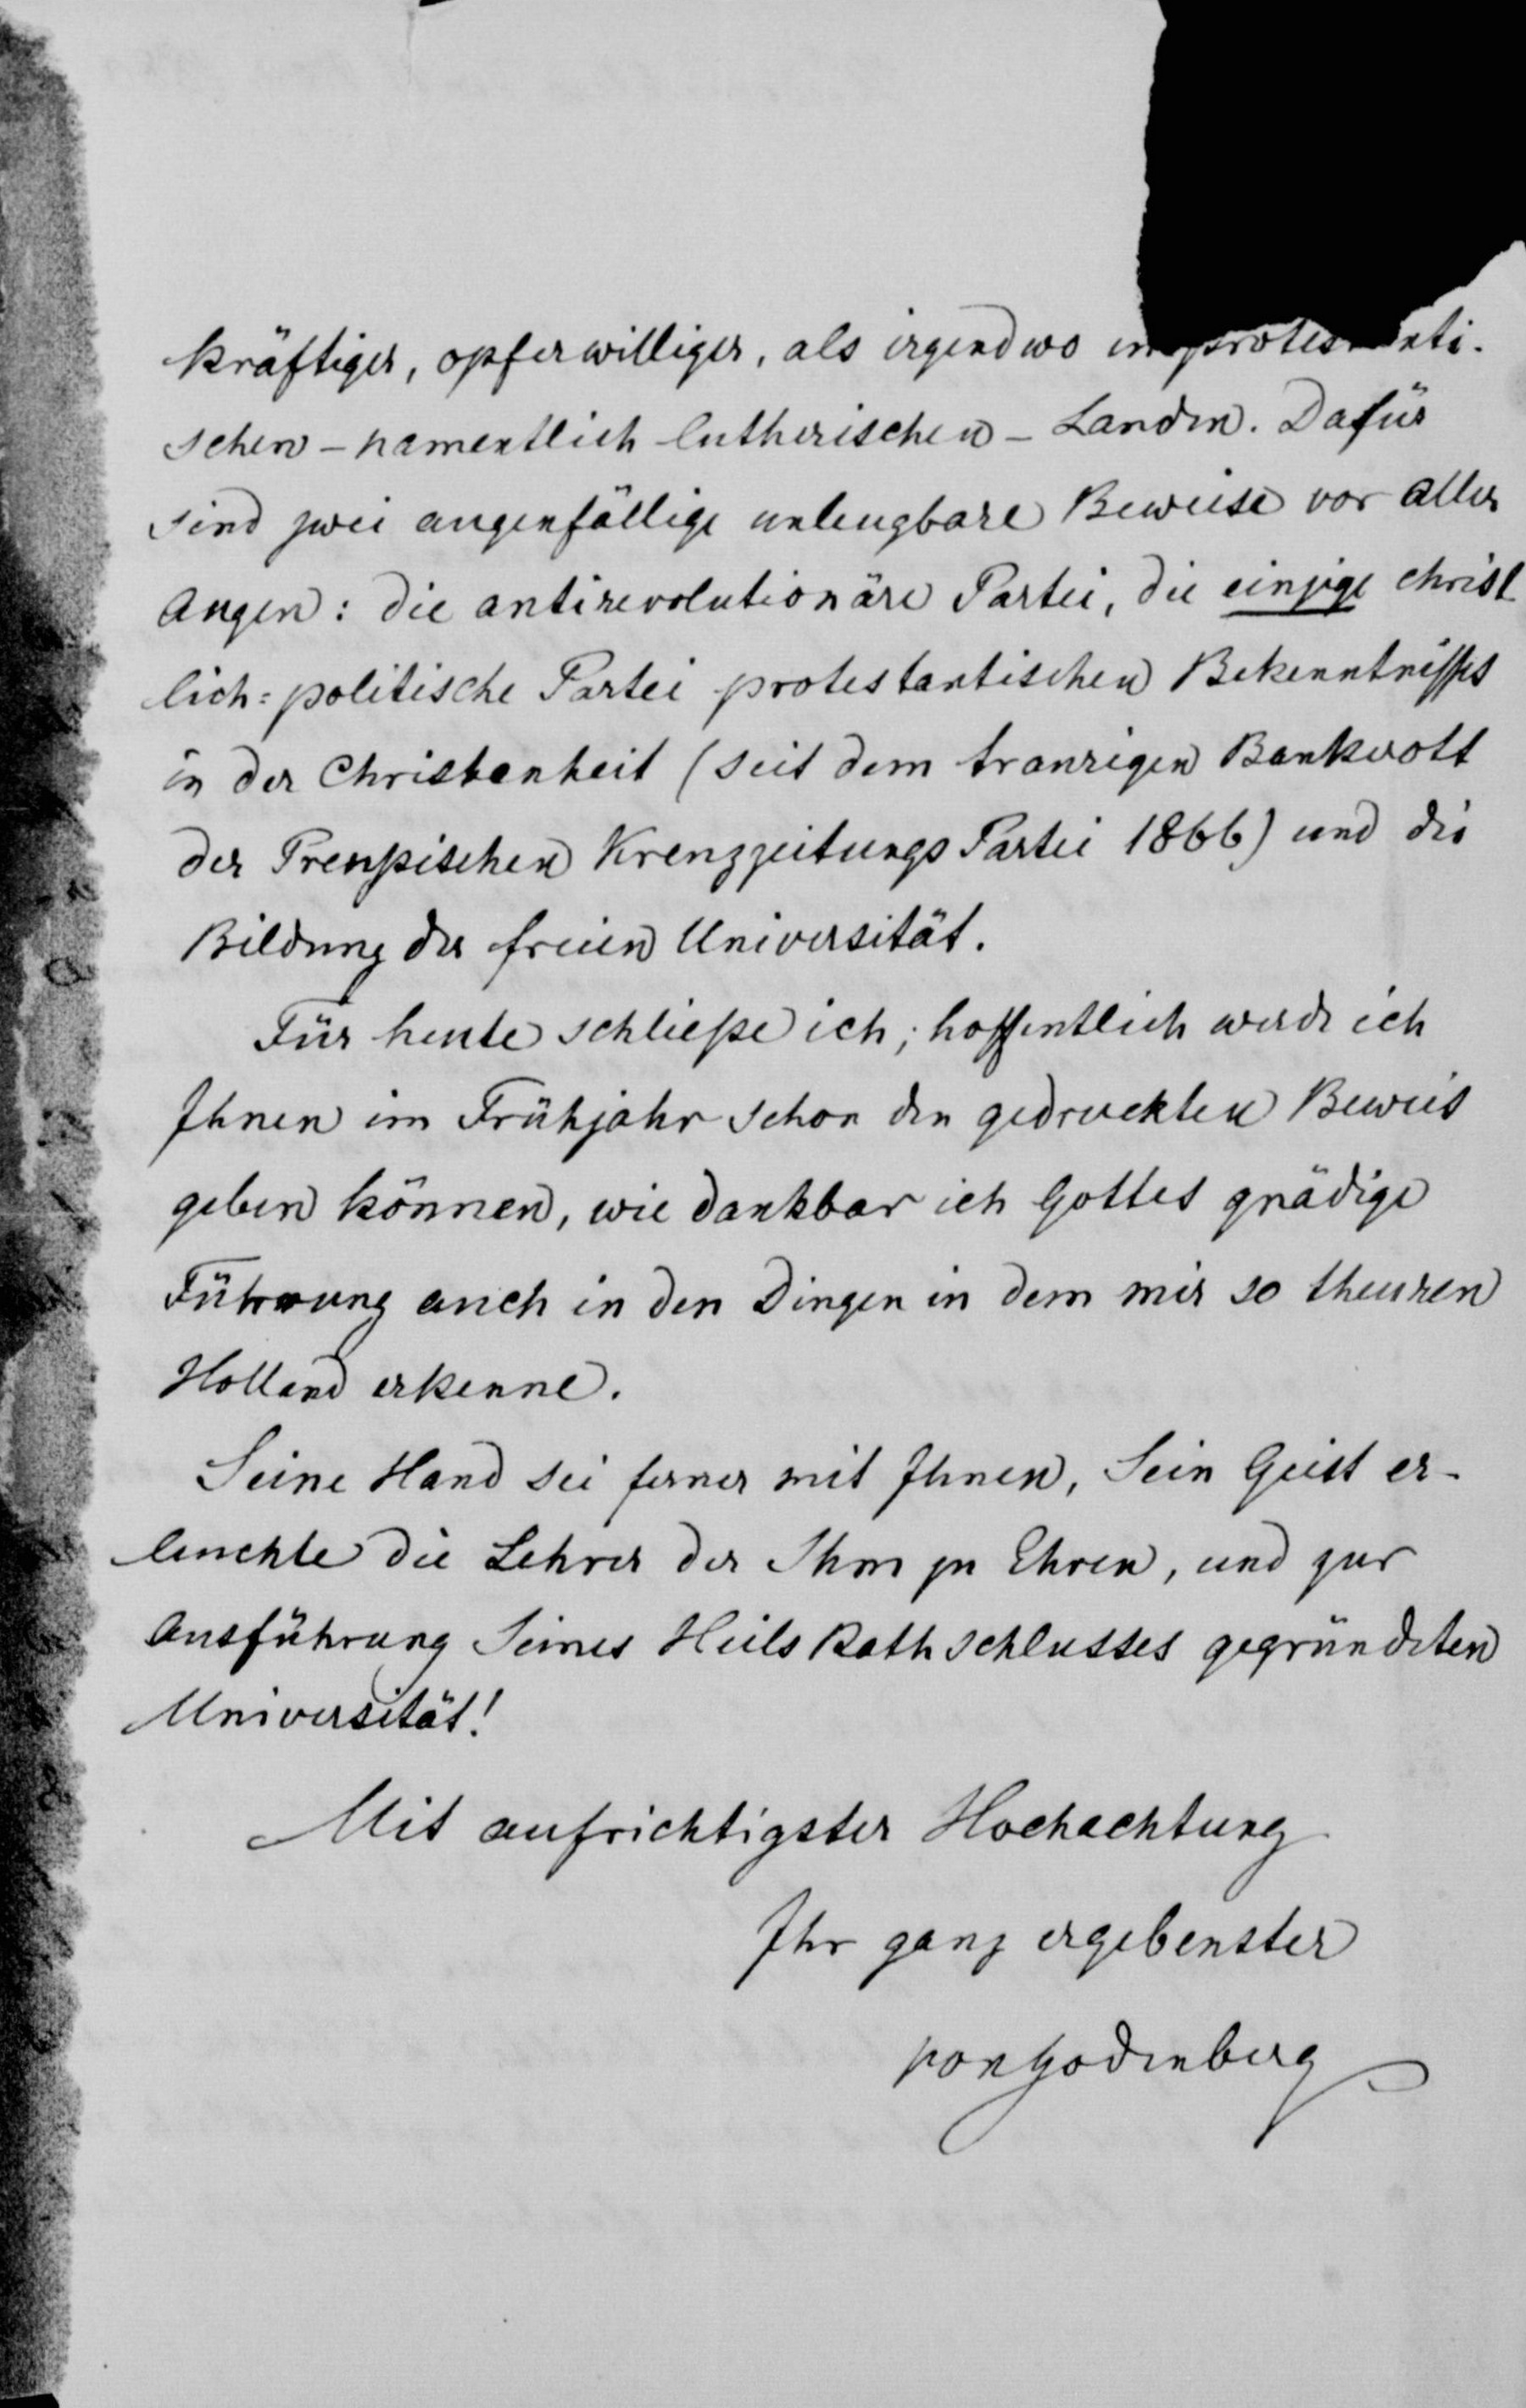 kräftiger, opferwilliger, als irgendwo im protestanti-
schen – namentlich lutherischen – Landen. Dafür
sind zwei augenfällige unleugbare Beweise vor aller
Augen: die antirevolutionäre Partei, die einzige christ
lich=politische Partei protestantischen Bekenntnißes
in der Christenheit (seit dem traurigen Bankrott
der Preußischen KreuzzeitungsPartei 1866) und die
Bildung der freien Universität.
Für heute schließe ich; hoffentlich werde ich
Ihnen im Frühjahr schon den gedruckten Beweis
geben können, wie dankbar ich Gottes gnädige
Führung auch in den Dingen in dem mir so theuren
Holland erkenne.
Seine Hand sei ferner mit Ihnen, Sein Geist er-
leuchte die Lehrer der Ihm zu Ehren, und zur
Ausführung Seines HeilsRathschlusses gegründeten
Universität!
Mit aufrichtigster Hochachtung
Ihr ganz ergebenster
von Hodenberg